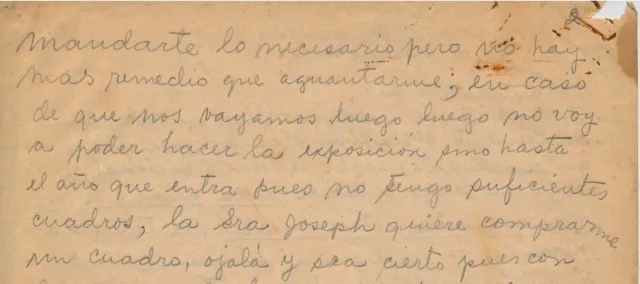 2
mandarte lo necesario pero no hay
más remedio que aguantarme; en caso
de que nos vayamos luego luego no voy
a poder hacer la exposición sino hasta
el año que entra pues no tengo suficientes
cuadros, la Sra Joseph quiere comprarme
un cuadro, ojalá y sea cierto pues con